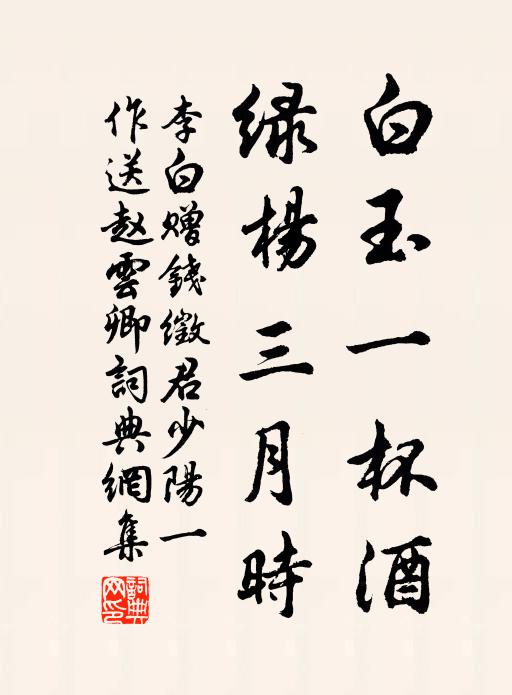 白玉一杯酒
绿楊三月時
李白赠錢徵君少陽一
作送赵雲卿詞典網集
詞典网印